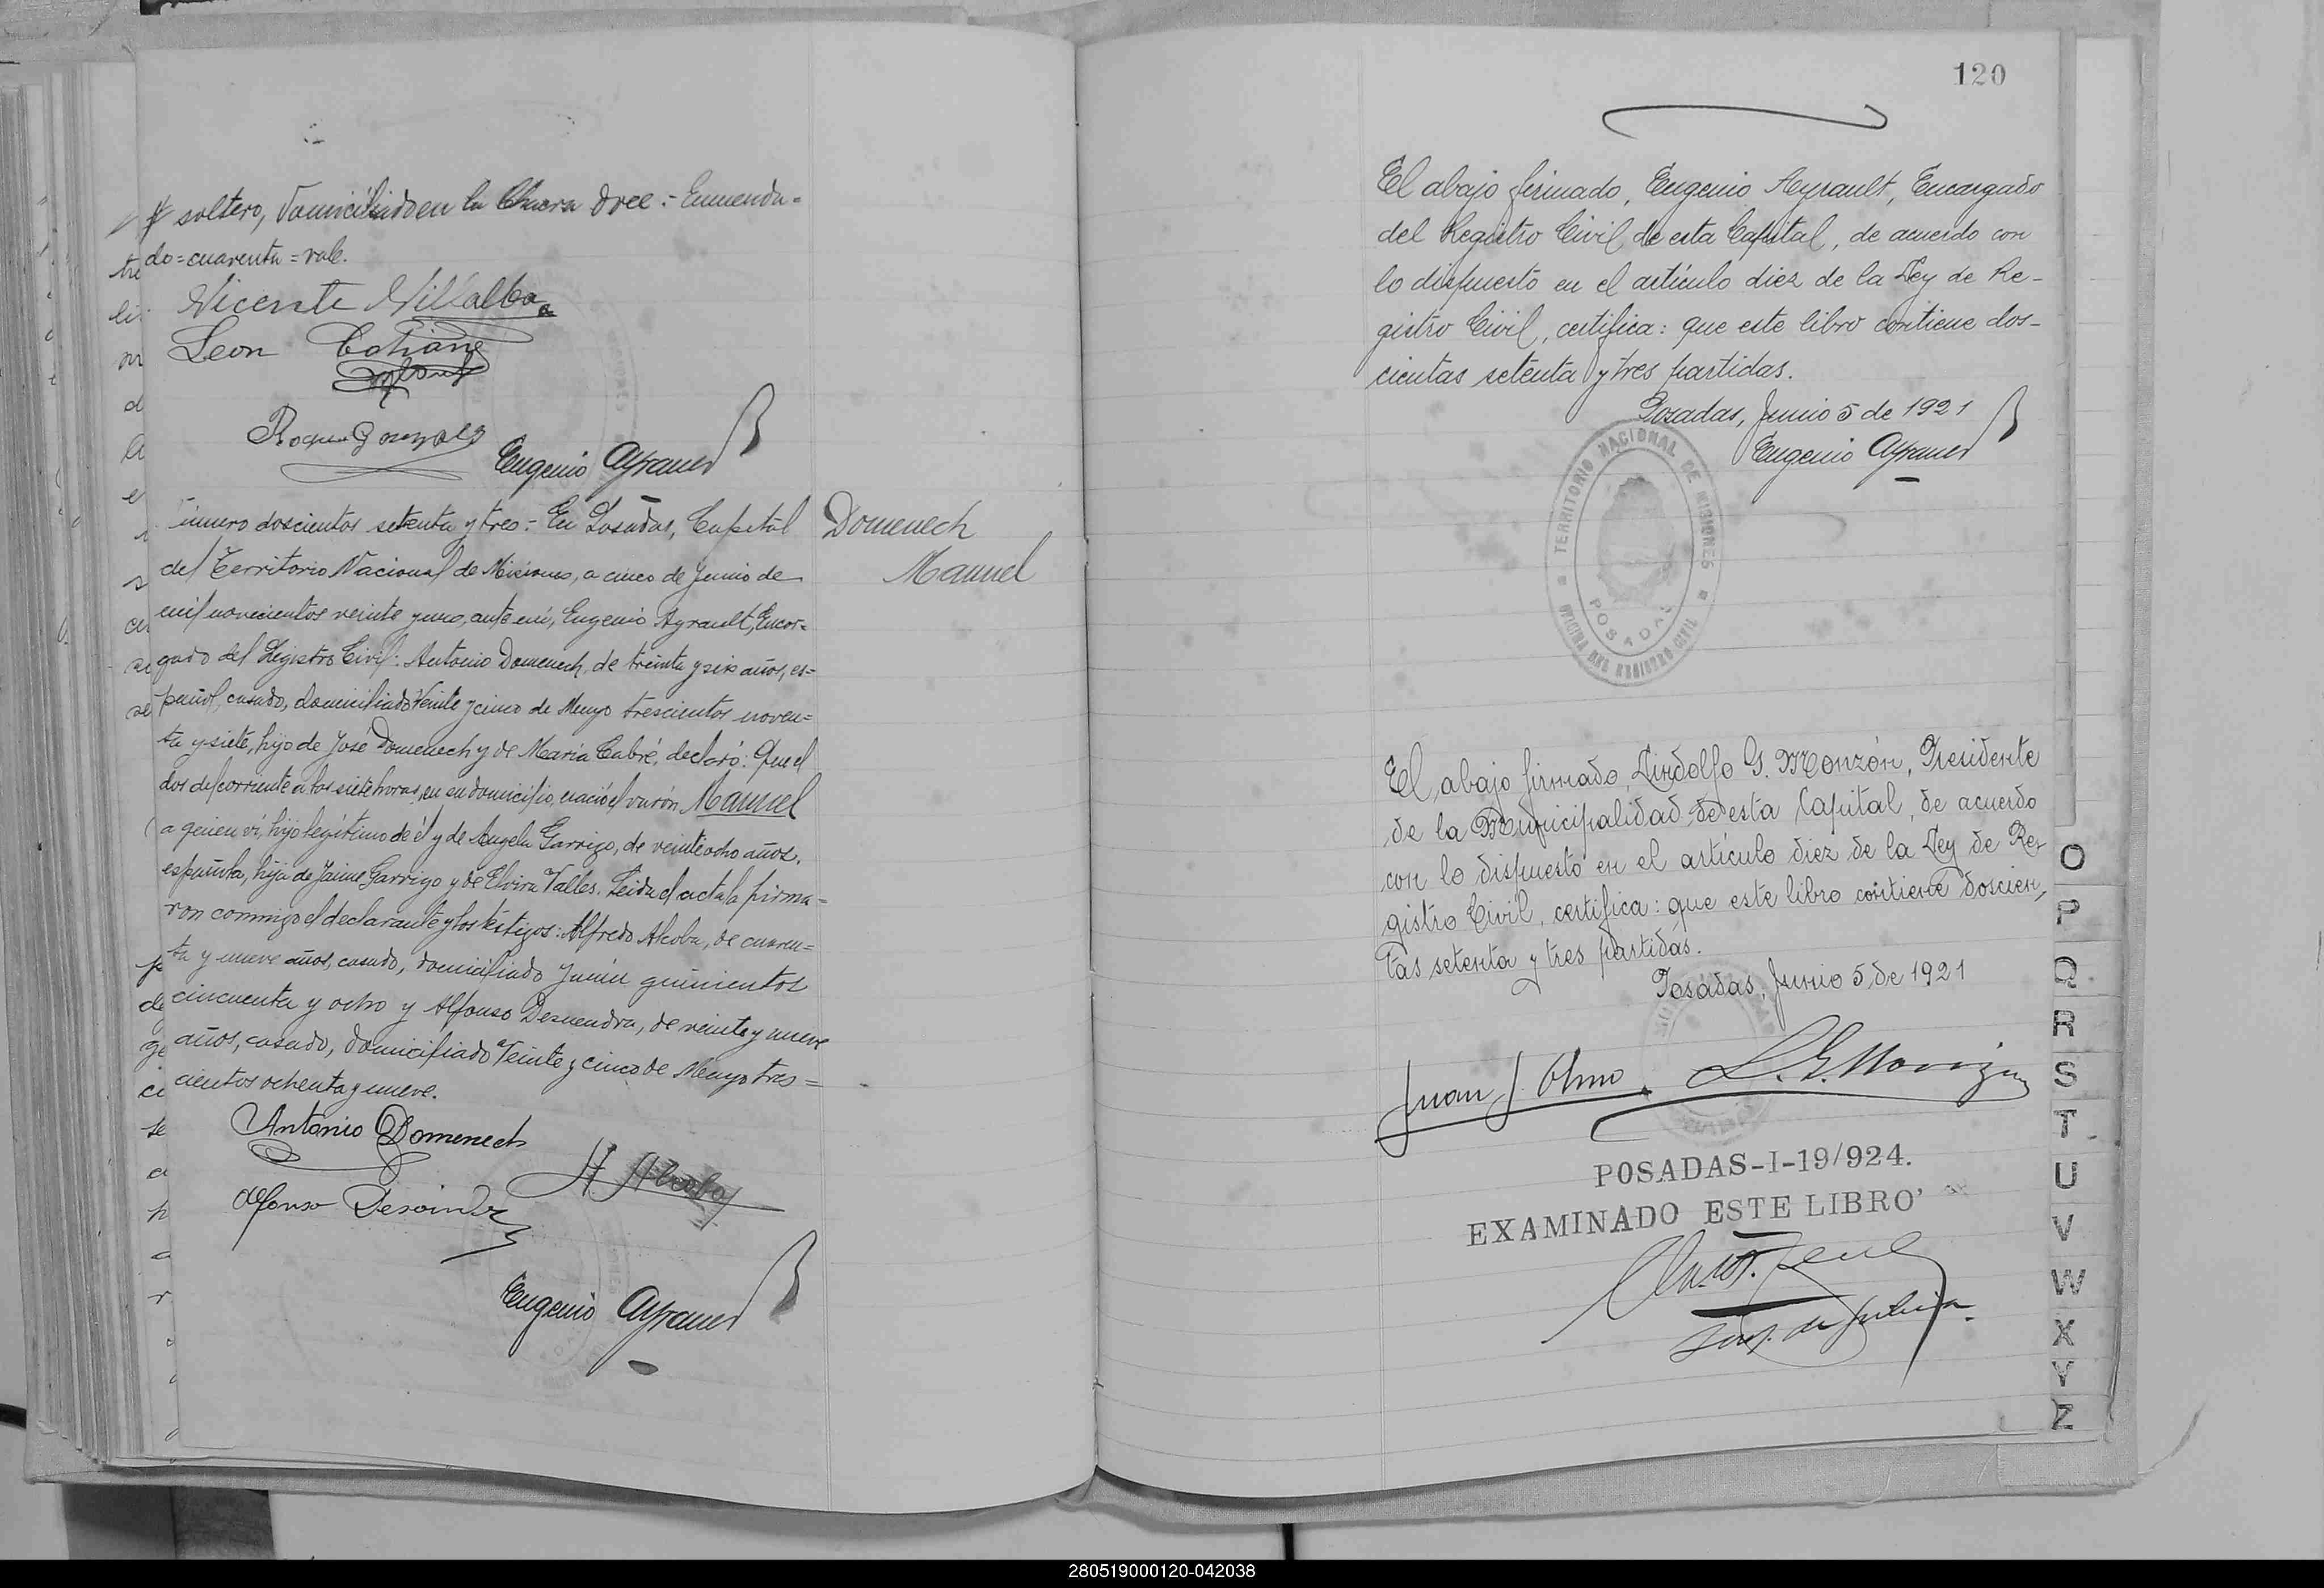 soltero, domiciliado en la Chacra doce.- Enmenda=
do=cuarenta=vale.
Vicente Villalba
Leon
Roque Gonzalez
Eugenio Ayrault
Número doscientos setenta y tres.- En Posadas, Capital
del Territorio Nacional de Misiones, a cinco de Junio de
mil novecientos veinte y uno, ante mí, Eugenio Ayrault, Encar=
gado del Registro Civil: Antonio Domenech, de treinta y seis años, es=
pañol, casado, domiciliado Veinte y cinco de Mayo trescientos noven=
ta y siete, hijo de José Domenech y de María Cabré, declaró: Que el
dos del corriente a las siete horas, en su domicilio, nació el varón Manuel
a quien ví, hijo legítimo de él y de Angela Garrigo, de veinte ocho años,
española, hija de Jaime Garrigo y de Elvira Valles. Leida el acta la firma=
ron conmigo el declarante y los testigos: Alfredo Alcoba, de cuaren=
ta y nueve años, casado, domiciliado Junín quinientos
cincuenta y ocho y Alfonso de veinte y nueve
años, casado, domiciliado Veinte y cinco de Mayo tres=
cientos ochenta y nueve.
Antonio Domenech
A. Alcoba
Alfonso
Eugenio Ayrault
Domenech
Manuel
120
El abajo firmado, Eugenio Ayrault, Encargado
del Registro Civil de esta Capital, de acuerdo con
lo dispuesto en el artículo diez de la Ley de Re-
gistro Civil, certifica: que este libro contiene dos-
cientas setenta y tres partidas.
Posadas, Junio 5 de 1921
Eugenio Ayrault
TERRITORIO NACIONAL DE MISIONES
POSADAS
OFICINA DEL REGISTRO CIVIL
El abajo firmado, Lindolfo G. Monzón, Presidente
de la Municipalidad de esta Capital, de acuerdo
con lo dispuesto en el artículo diez de la Ley de Re-
gistro Civil, certifica: que este libro contiene doscien,
tas setenta y tres partidas.
Posadas, Junio 5, de 1921
Juan J. Olmo
L. G. Monzón
POSADAS-I-19/924.
EXAMINADO ESTE LIBRO
O
P
Q
R
S
T
U
V
W
X
Y
Z
280519000120-042038